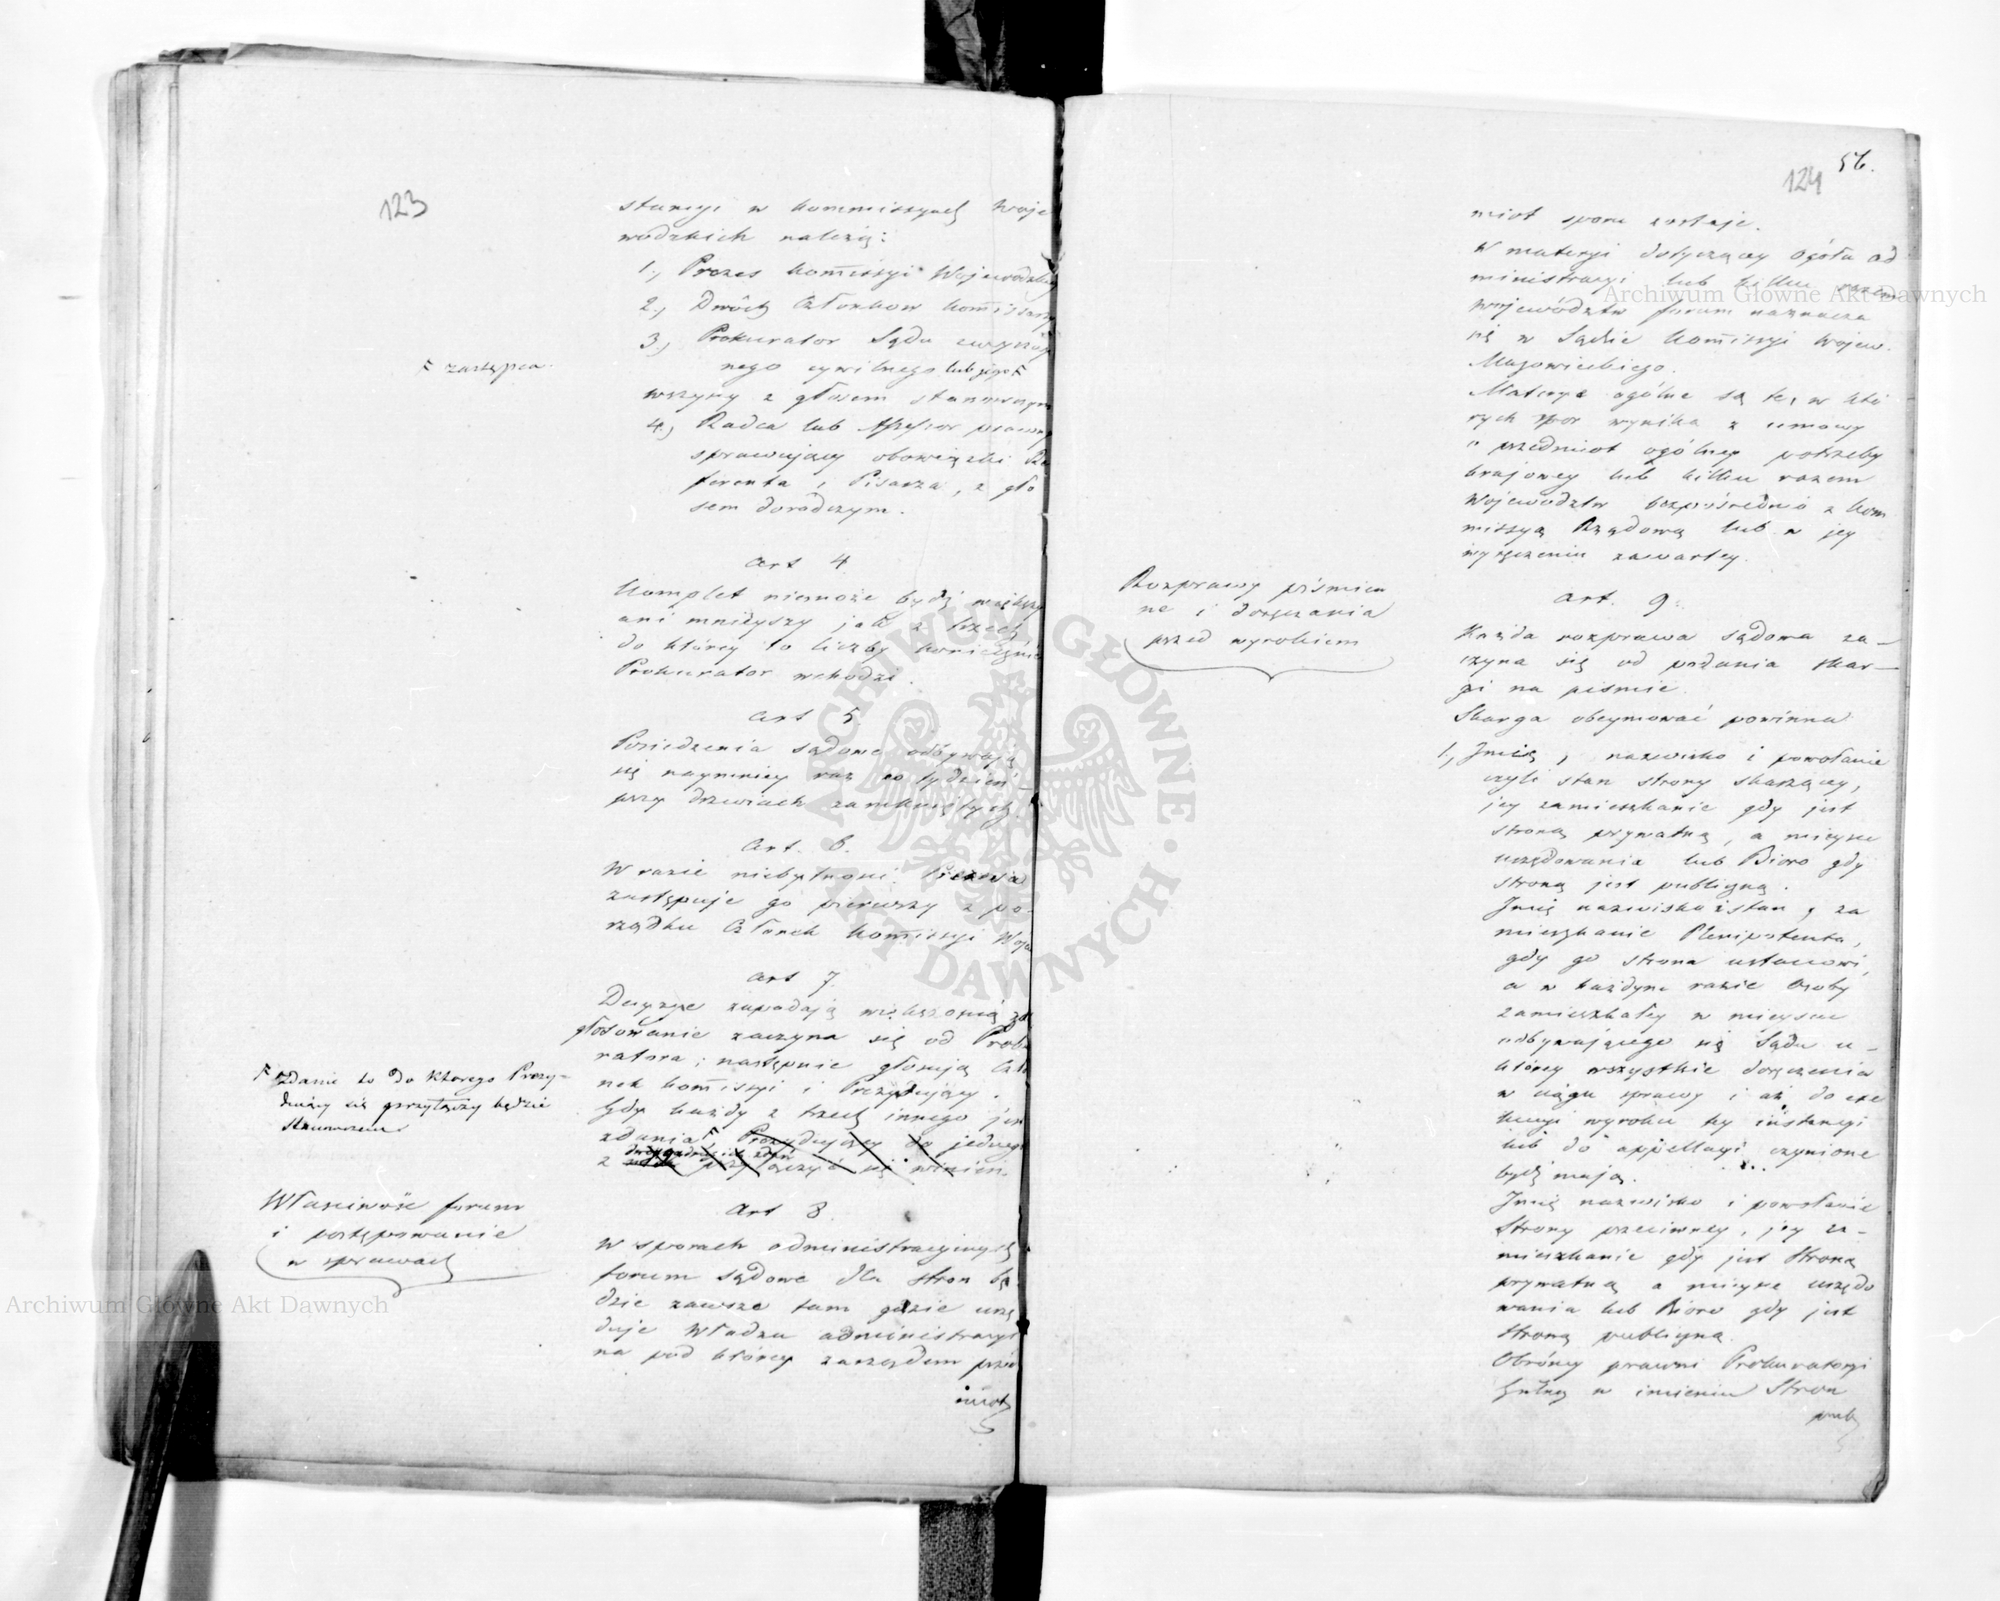 123
stancyi w kommissyach Woje
wodzkich należą:
1., Prezes Kommissyi Wojewodzkiey
2., Dwóch Członkow Kommissyi
3., Prokurator Sądu cywyl
nego cywilnego lub jego F
F zastępca.
wszyscy z głosem stanowczym
4., Radca lub Assessor prawny
sprawujący obowiązki Re
ferenta i Pisarza, z gło
sem doradczym.
Art 4
Komplet niemoże bydź większy
ani mnieyszy jak z trzech
do którey to liczby koniecznie
Prokurator wchodzi.
Art 5
Posiedzenia sądowe odbywają
się naymniey raz co tydzień
przy drzwiach zamkniętych.
Art. 6.
W razie niebytności Prezesa
zastępuje go pierwszy z po-
rządku Członek Kommissyi Woje
Art 7.
Decyzye zapadają większością zd
głosowanie zaczyna się od Proku
ratora; następnie głosują Czło
nek Kommissyi i Prezydujący.
Gdy każdy z trzech innego jest
zdania F Prezydujący do jednego
z przyłączyć się winien.
F zdanie to do którego Prezy-
dujący się przyłączy będzie
stanowcze
Właściwość forum
i postępowanie
w sprawach
Art 8.
W sporach administracyinych
forum sądowe dla stron bę
dzie zawsze tam gdzie urzę
duje Władza administracyi
na pod którey zarządem przed
miot
56.
124
miot sporu zostaje.
W materyi dotyczącey ogółu ad
ministracyi lub kilku razem
Województw forum naznacza
się w Sądzie Kommissyi Wojew.
Mazowieckiego.
Materye ogólne są te, w któ
rych spor wynika z umowy
o przedmiot ogólney potrzeby
krajowey lub kilku razem
Województw bezpośrednio z Kom
missyą Rządową lub w jey
wyręczeniu zawartey.
Rozprawy piśmien
ne i doręczania
przed wyrokiem
Art. 9.
Każda rozprawa sądowa za-
czyna się od podania skar-
gi na pismie.
Skarga obeymować powinna
1, Jmię, nazwisko i powołanie
czyli stan strony skarżącey,
jey zamieszkanie gdy jest
stroną prywatną, a mieysce
urzędowania lub Bioro gdy
stroną jest publiczną.
Jmię nazwisko i stan, za
mieszkanie Plenipotenta,
gdy go strona ustanowi,
a w każdym razie Osoby
zamieszkałey w mieyscu
odbywającego się Sądu u-
którey wszystkie doręczenia
w ciągu sprawy i aż do exe
kucyi wyroku tey instancyi
lub do appellacyi czynione
bydź mają.
Jmię nazwisko i powołanie
Strony przeciwney, jey za-
mieszkanie gdy jest Stroną
prywatną a mieysce urzędo
wania lub Bioro gdy jest
stroną publiczną.
Obrońcy prawni Prokuratoryi
w imieniu Stron
publ
Archiwum Główne Akt Dawnych
Archiwum Główne Akt Dawnych
ARCHIWUM GŁÓWNE AKT DAWNYCH